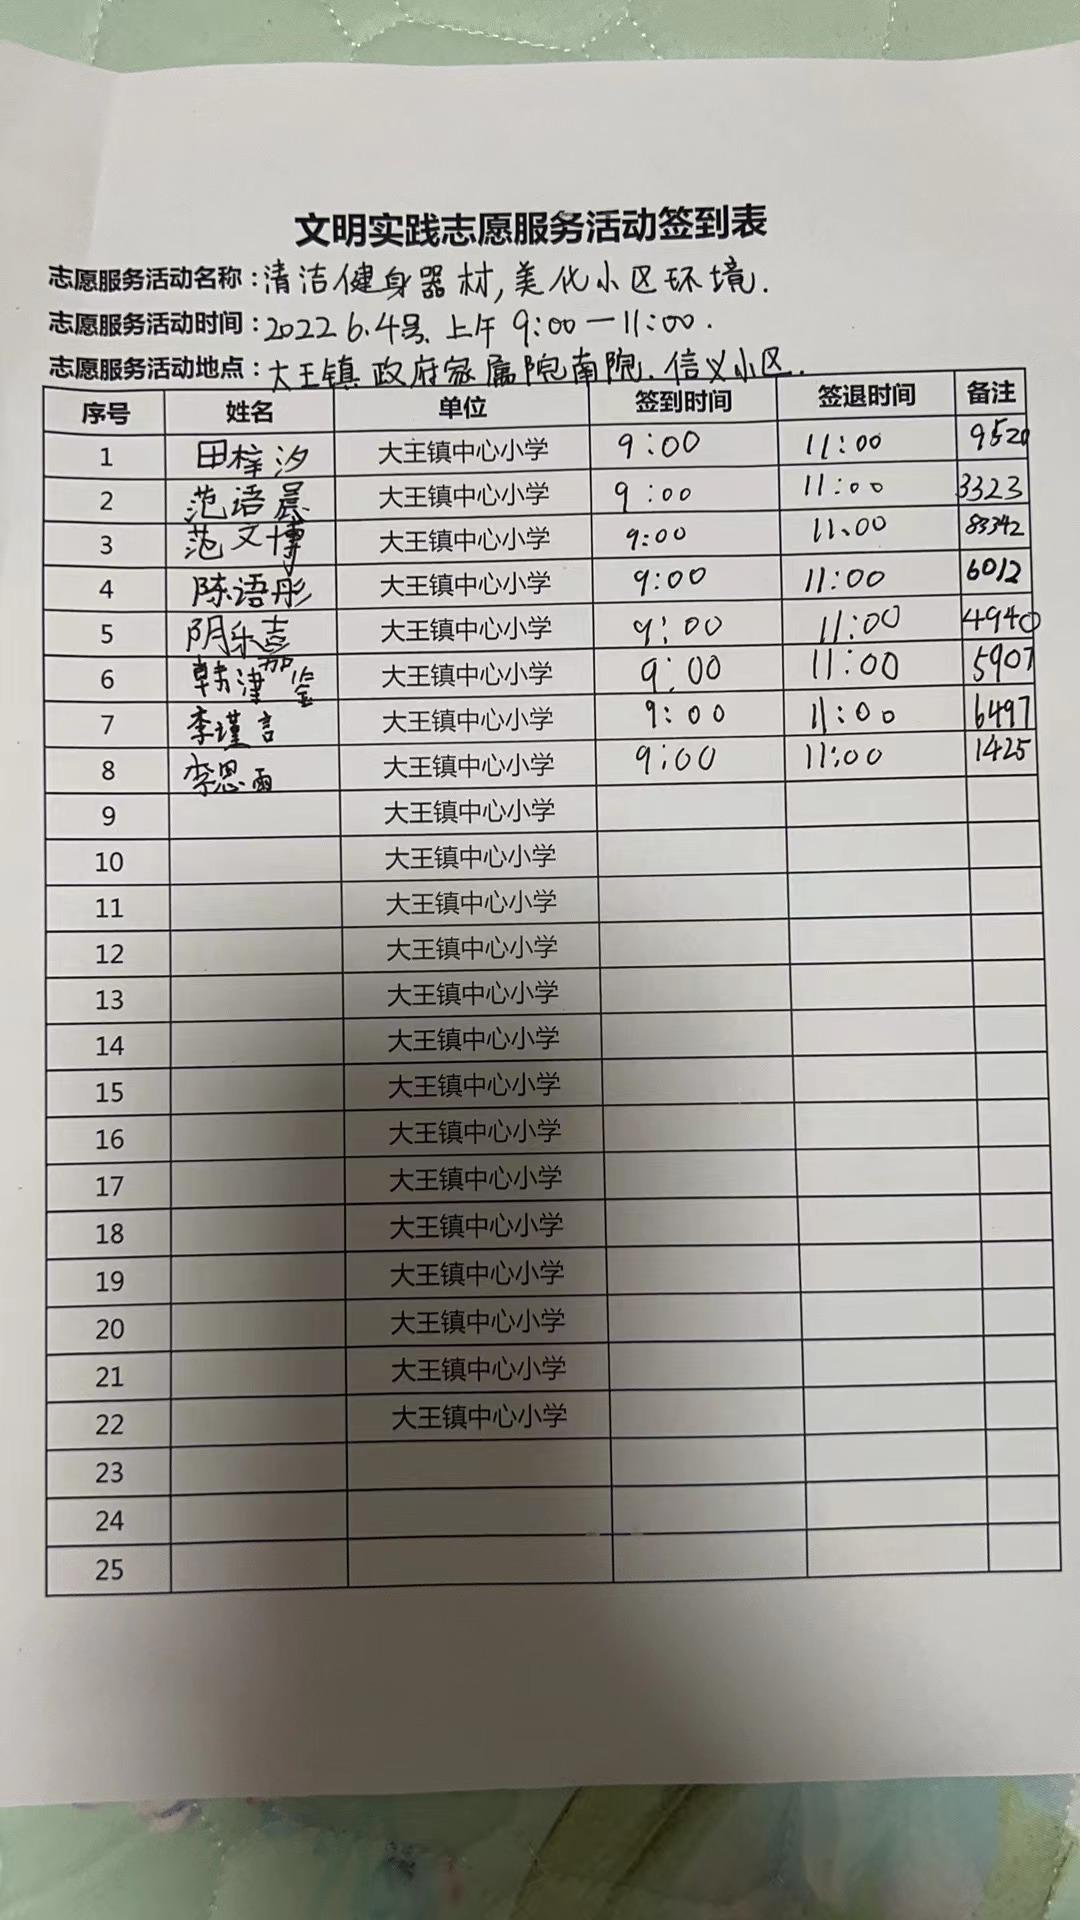 文明实践志愿服务活动签到表
志愿服务活动名称：清洁健身器材，美化小区环境.
志愿服务活动时间：2022 6.4号.上午 9:00—11:00.
志愿服务活动地点：大王镇政府家属院南院.信义小区.
序号 姓名 单位 签到时间 签退时间 备注
1 田梓汐 大王镇中心小学 9:00 11:00 9520
2 范语晨 大王镇中心小学 9:00 11:00 3323
3 范文博 大王镇中心小学 9:00 11:00
4 陈语彤 大王镇中心小学 9:00 11:00 6012
5 阴乐喜 大王镇中心小学 9:00 11:00 4940
6 韩津 大王镇中心小学 9:00 11:00 5907
7 李瑾言 大王镇中心小学 9:00 11:00 6497
8 李思雨 大王镇中心小学 9:00 11:00 1425
9 大王镇中心小学
10 大王镇中心小学
11 大王镇中心小学
12 大王镇中心小学
13 大王镇中心小学
14 大王镇中心小学
15 大王镇中心小学
16 大王镇中心小学
17 大王镇中心小学
18 大王镇中心小学
19 大王镇中心小学
20 大王镇中心小学
21 大王镇中心小学
22 大王镇中心小学
23
24
25